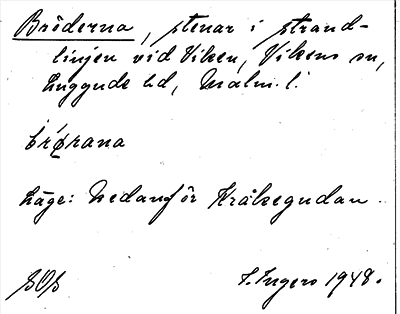 Bröderna, stenar i strand-
linjen vid Viken, Vikens sn,
Luggude hd, Malm. l.
brǿrana
Läge: Nedanför Kråkegudan.
I. Ingers 1948.